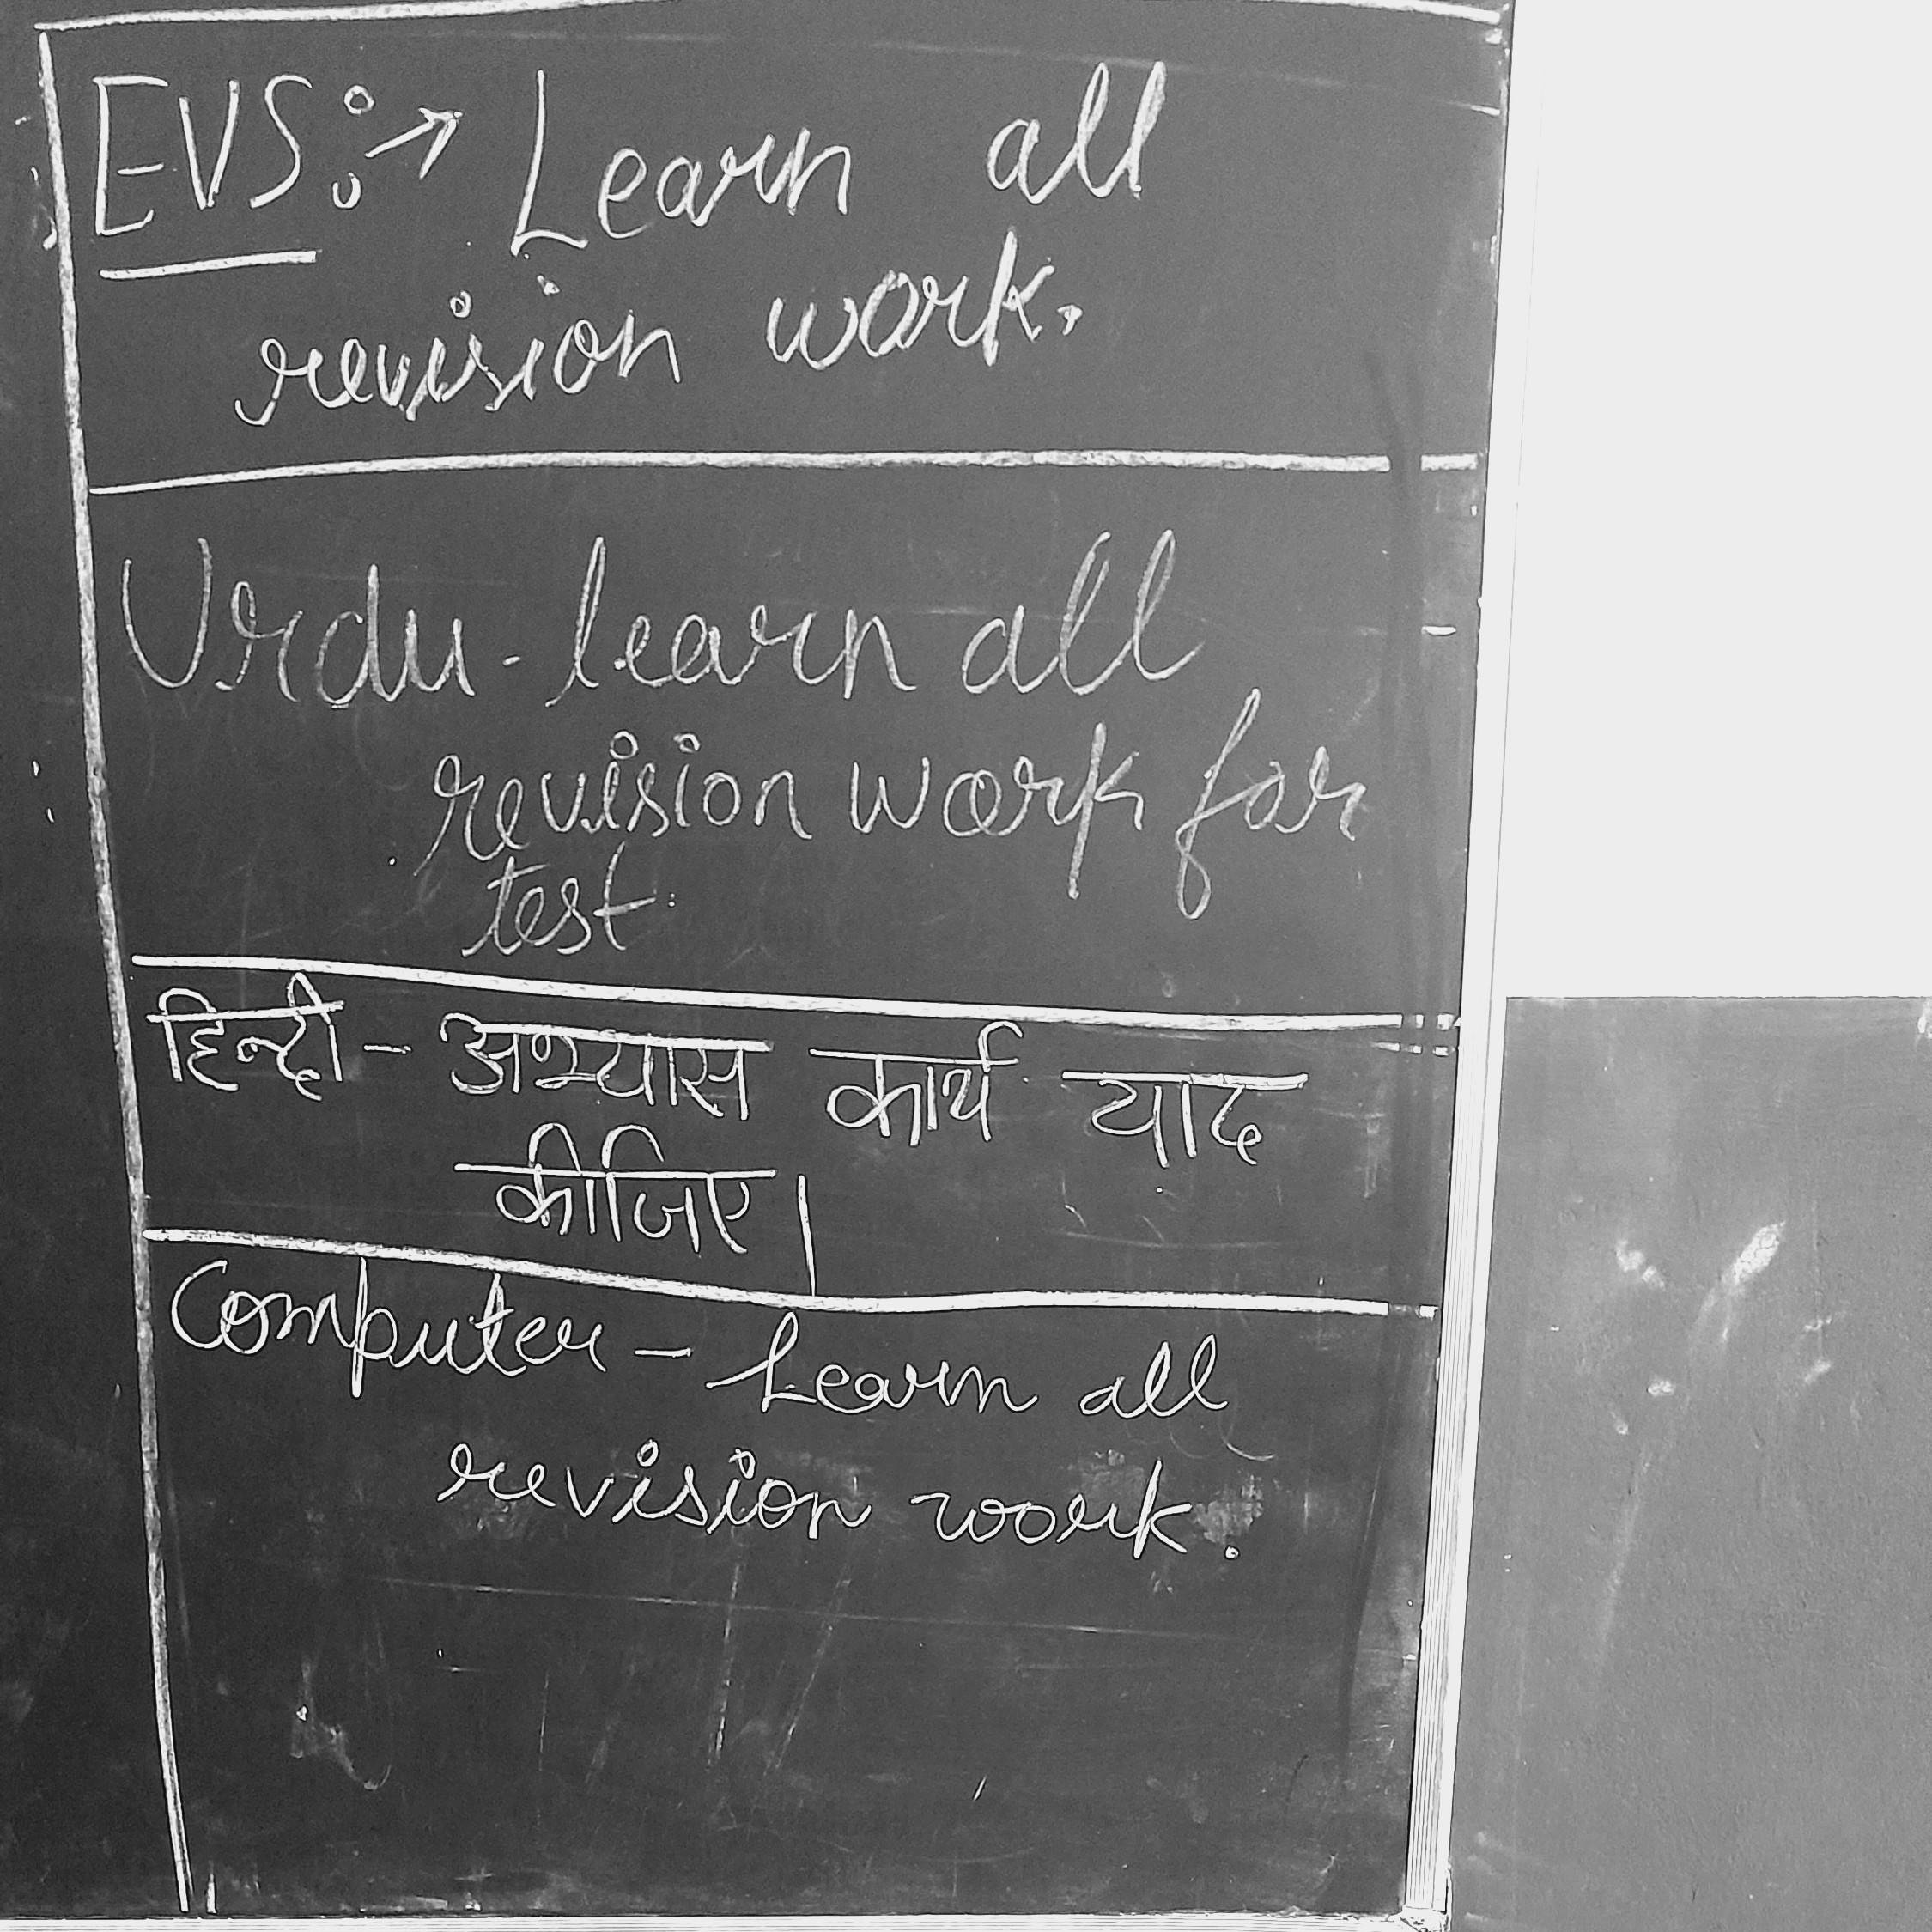 EVS:→ Learn all
revision work.
Urdu - learn all
revision work for
test
हिन्दी - अभ्यास कार्य याद
कीजिए।
Computer - Learn all
revision work.